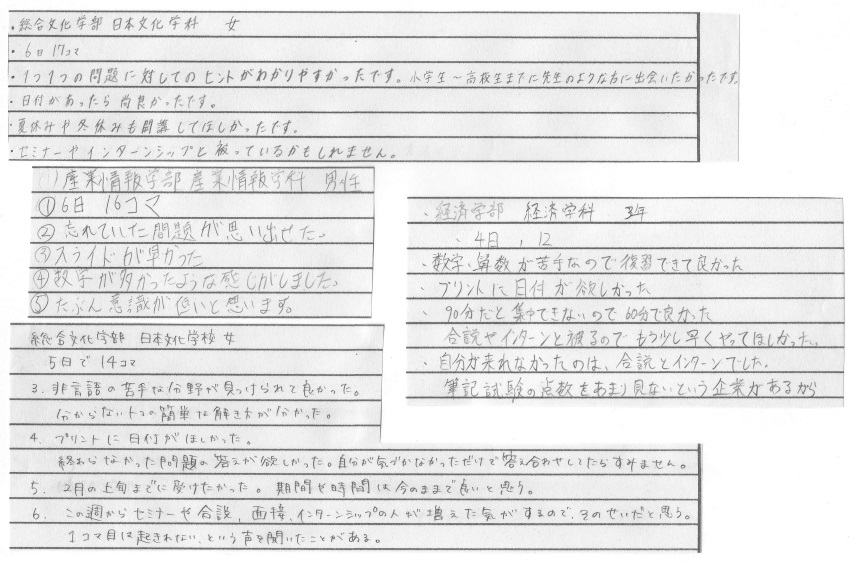 ・総合文化学部 日本文化学科 女
・6日 17コマ
・1つ1つの問題に対してのヒントがわかりやすかったです。小学生～高校生までに先生のような方に出会いたかったです。
・日付があったら尚良かったです。
・夏休みや冬休みも開講してほしかったです。
・セミナーやインターンシップと被っているかもしれません。
産業情報学部 産業情報学科 男性
①6日 16コマ
②忘れていた問題が思い出せた。
③スライドが早かった
④数学が多かったような感じがしました。
⑤たぶん意識が低いと思います。
・経済学部 経済学科 3年
・4日, 12
・数字・算数が苦手なので復習できて良かった
・プリントに日付が欲しかった
・90分だと集中できないので60分で良かった
合説やインターンと被るのでもう少し早くやってほしかった。
・自分が来れなかったのは、合説とインターンでした。
筆記試験の点数をあまり見ないという企業があるから
総合文化学部 日本文化学校 女
5日で14コマ
3. 非言語の苦手な分野が見つけられて良かった。
分からないトコの簡単な解き方が分かった。
4. プリントに日付がほしかった。
終わらなかった問題の答えが欲しかった。自分が気づかなかっただけで答え合わせしてたらすみません。
5. 2月の上旬までに受けたかった。期間や時間は今のままで良いと思う。
6. この週からセミナーや合説、面接、インターンシップの人が増えた気がするので、そのせいだと思う。
1コマ目は起きれない、という声を聞いたことがある。